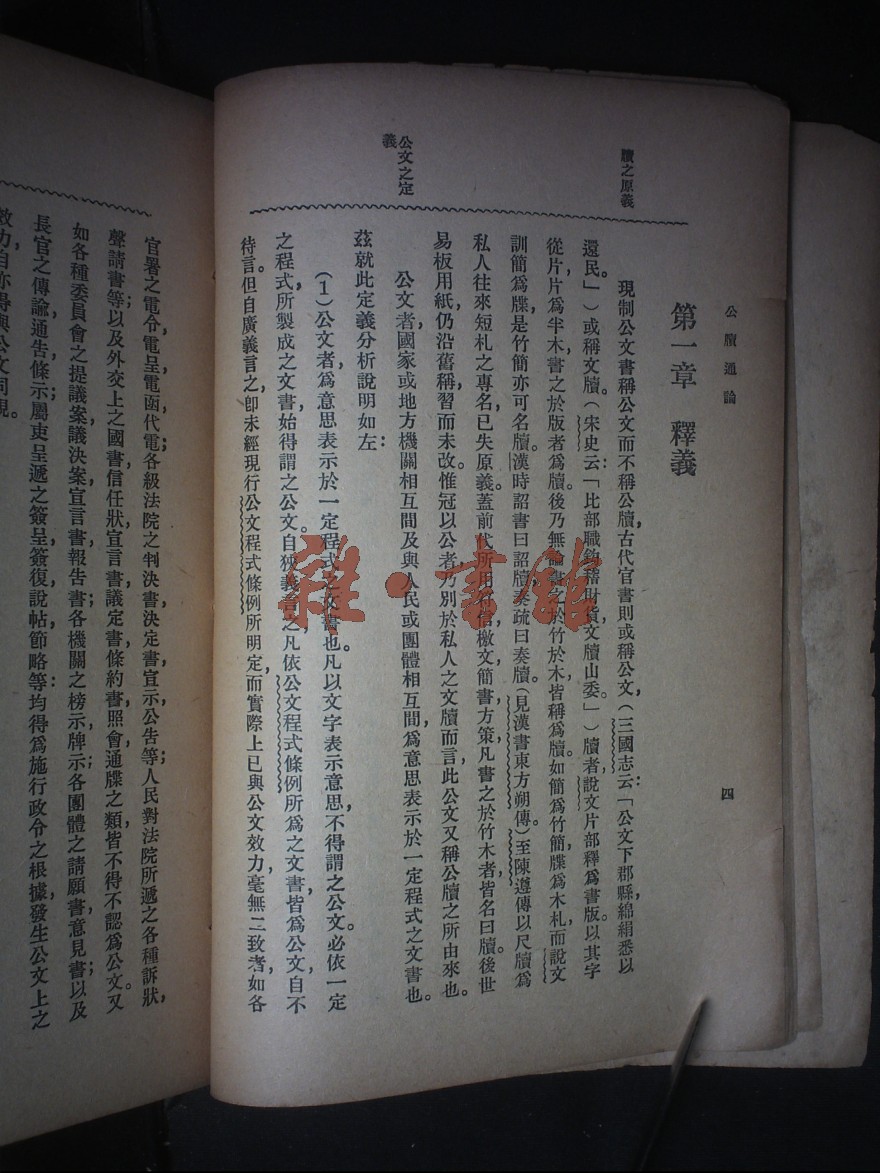 公牘通論
四
第一章　釋義
牘之原義
現制公文書稱公文而不稱公牘，古代官書則或稱公文，（三國志云：「公文下郡縣，綿絹悉以
還民。」）或稱文牘。（宋史云：「比部職鉤稽財貨，文牘山委。」）牘者，說文片部釋爲書版，以其字
從片，片爲半木，書之於版者爲牘。後乃無論書之於竹於木，皆稱爲牘。如簡爲竹簡，牒爲木札，而說文
訓簡爲牒，是竹簡亦可名牘。漢時詔書曰詔牘，奏疏曰奏牘，（見漢書東方朔傳）至陳遵傳以尺牘爲
私人往來短札之專名，已失原義。蓋前代所用符信檄文簡書方策，凡書之於竹木者，皆名曰牘。後世
易板用紙，仍沿舊稱，習而未改。惟冠以公者，乃別於私人之文牘而言，此公文又稱公牘之所由來也。
公文之定
義
公文者，國家或地方機關相互間，及與人民或團體相互間，爲意思表示於一定程式之文書也。
茲就此定義分析說明如左：
（1）公文者，爲意思表示於一定程式之文書也。凡以文字表示意思，不得謂之公文。必依一定
之程式，所製成之文書，始得謂之公文。自狹義言之，凡依公文程式條例所爲之文書，皆爲公文，自不
待言。但自廣義言之，卽未經現行公文程式條例所明定，而實際上已與公文效力毫無二致者，如各
官署之電令，電呈，電函，代電；各級法院之判決書，決定書，宣示，公告等；人民對法院所遞之各種訴狀，
聲請書等；以及外交上之國書，信任狀，宣言書，議定書，條約書，照會，通牒之類，皆不得不認爲公文。又
如各種委員會之提議案，議決案，宣言書，報告書；各機關之榜示，牌示；各團體之請願書，意見書；以及
長官之傳諭，通告，條示；屬吏呈遞之簽呈，簽復，說帖，節略等；均得爲施行政令之根據，發生公文上之
效力，自亦得與公文同視。
雜·書館